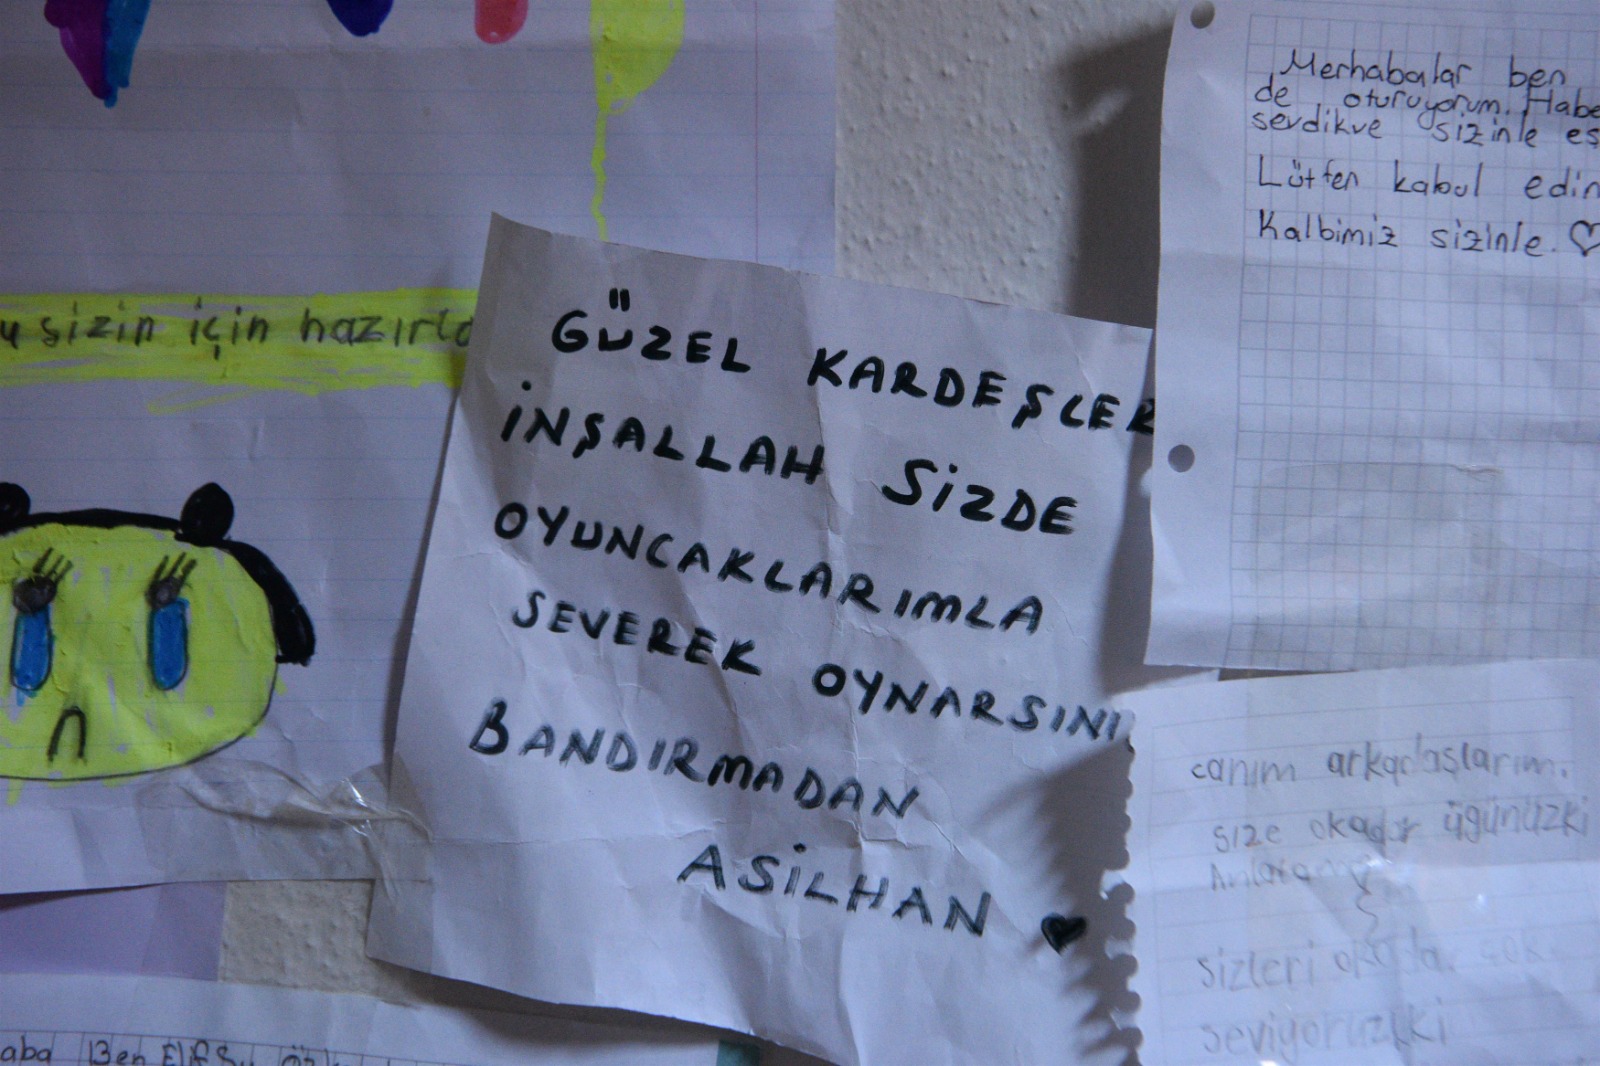 sizin için hazırl
GÜZEL KARDEŞLER
İNŞALLAH SİZDE
OYUNCAKLARIMLA
SEVEREK OYNARSINI
BANDIRMADAN
ASİLHAN ♥
Merhabalar ben
de oturuyorum. Habe
sevdikve sizinle eş
Lütfen kabul edin
Kalbimiz sizinle. ♡
canım arkadaşlarım.
size okadar üğünüzki
sizleri okadar çok
seviyoruzki
aba Ben Elif Su